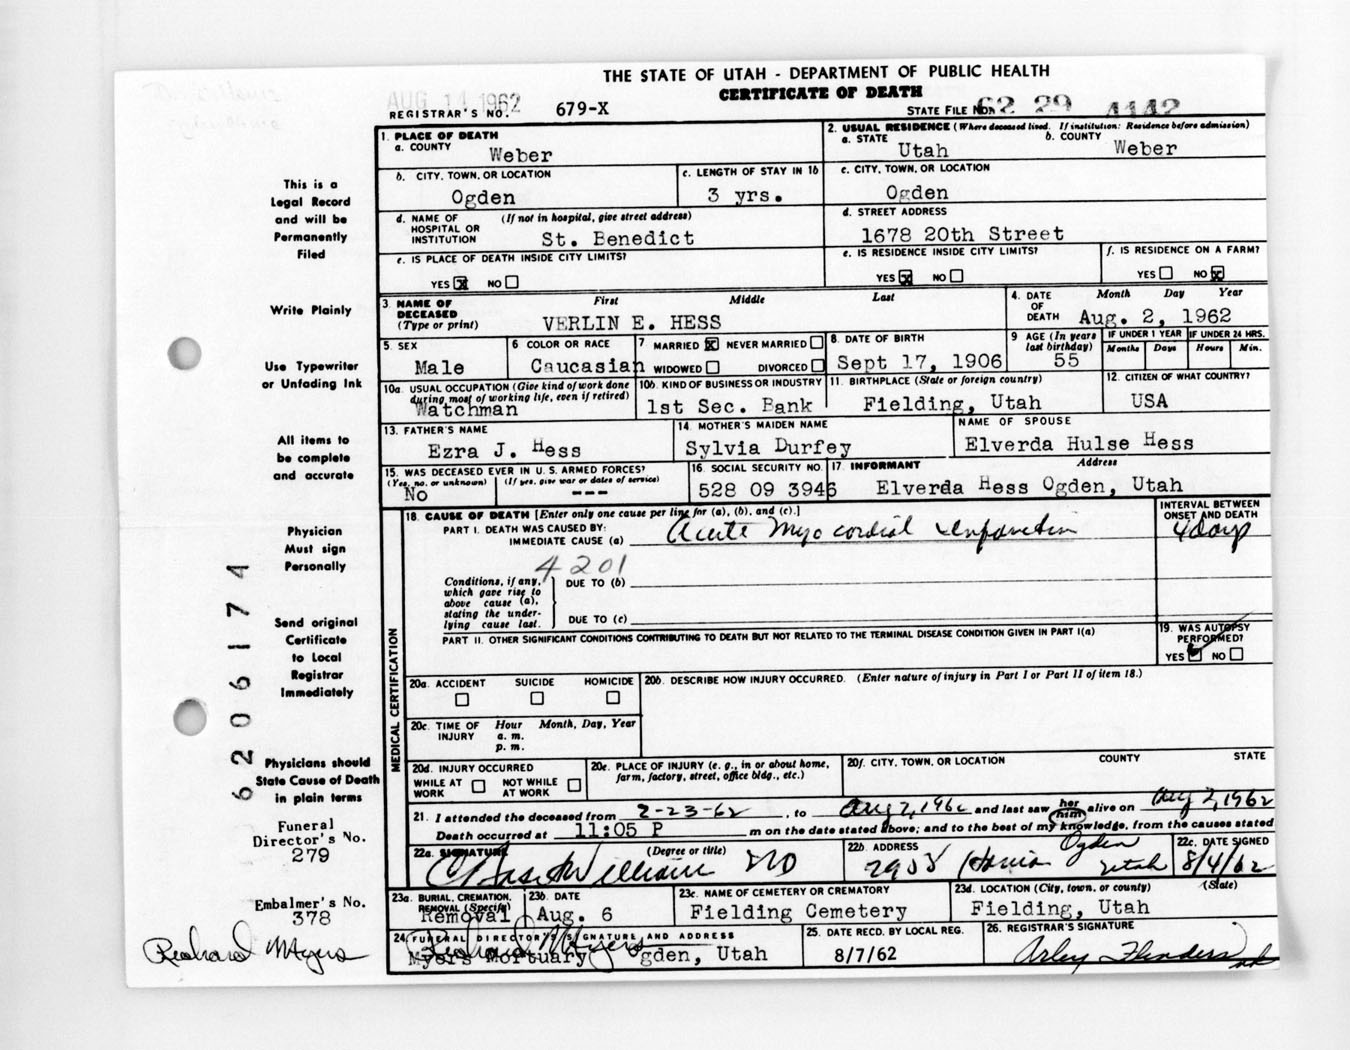 THE STATE OF UTAH - DEPARTMENT OF PUBLIC HEALTH
CERTIFICATE OF DEATH
AUG 14 1962
REGISTRAR'S NO. 679-X
STATE FILE NO. 62 29 4142
1. PLACE OF DEATH
a. COUNTY
Weber
2. USUAL RESIDENCE (Where deceased lived. If institution: Residence before admission)
a. STATE
Utah
b. COUNTY
Weber
b. CITY, TOWN, OR LOCATION
Ogden
c. LENGTH OF STAY IN 1b
3 yrs.
c. CITY, TOWN, OR LOCATION
Ogden
d. NAME OF HOSPITAL OR INSTITUTION
(If not in hospital, give street address)
St. Benedict
d. STREET ADDRESS
1678 20th Street
e. IS PLACE OF DEATH INSIDE CITY LIMITS?
YES X NO
e. IS RESIDENCE INSIDE CITY LIMITS?
YES X NO
f. IS RESIDENCE ON A FARM?
YES NO X
3. NAME OF DECEASED
(Type or print)
First Middle Last
VERLIN E. HESS
4. DATE OF DEATH
Month Day Year
Aug. 2, 1962
5. SEX
Male
6 COLOR OR RACE
Caucasian
7 MARRIED X NEVER MARRIED
WIDOWED DIVORCED
8. DATE OF BIRTH
Sept 17, 1906
9 AGE (In years last birthday)
55
IF UNDER 1 YEAR
Months Days
IF UNDER 24 HRS.
Hours Min.
10a. USUAL OCCUPATION (Give kind of work done during most of working life, even if retired)
Watchman
10b. KIND OF BUSINESS OR INDUSTRY
1st Sec. Bank
11. BIRTHPLACE (State or foreign country)
Fielding, Utah
12. CITIZEN OF WHAT COUNTRY?
USA
13. FATHER'S NAME
Ezra J. Hess
14. MOTHER'S MAIDEN NAME
Sylvia Durfey
NAME OF SPOUSE
Elverda Hulse Hess
15. WAS DECEASED EVER IN U. S. ARMED FORCES?
(Yes, no, or unknown) (If yes, give war or dates of service)
No ---
16. SOCIAL SECURITY NO.
528 09 3946
17. INFORMANT Address
Elverda Hess Ogden, Utah
MEDICAL CERTIFICATION
18. CAUSE OF DEATH [Enter only one cause per line for (a), (b), and (c).]
PART I. DEATH WAS CAUSED BY:
IMMEDIATE CAUSE (a) Acute Myocordial Infarction
INTERVAL BETWEEN ONSET AND DEATH
4 days
4201
Conditions, if any, which gave rise to above cause (a), stating the underlying cause last.
DUE TO (b)
DUE TO (c)
PART II. OTHER SIGNIFICANT CONDITIONS CONTRIBUTING TO DEATH BUT NOT RELATED TO THE TERMINAL DISEASE CONDITION GIVEN IN PART I(a)
19. WAS AUTOPSY PERFORMED?
YES NO
20a. ACCIDENT SUICIDE HOMICIDE
20b. DESCRIBE HOW INJURY OCCURRED. (Enter nature of injury in Part I or Part II of item 18.)
20c. TIME OF INJURY
Hour Month, Day, Year
a. m.
p. m.
20d. INJURY OCCURRED
WHILE AT WORK NOT WHILE AT WORK
20e. PLACE OF INJURY (e. g., in or about home, farm, factory, street, office bldg., etc.)
20f. CITY, TOWN, OR LOCATION COUNTY STATE
21. I attended the deceased from 2-23-62, to Aug 2, 1962 and last saw her him alive on Aug 2, 1962
Death occurred at 11:05 P m on the date stated above; and to the best of my knowledge, from the causes stated
22a. SIGNATURE (Degree or title)
Williams MD
22b. ADDRESS
Ogden
Utah
22c. DATE SIGNED
8/4/62
23a. BURIAL, CREMATION, REMOVAL (Specify)
Removal
23b. DATE
Aug. 6
23c. NAME OF CEMETERY OR CREMATORY
Fielding Cemetery
23d. LOCATION (City, town, or county) (State)
Fielding, Utah
24. FUNERAL DIRECTOR'S SIGNATURE AND ADDRESS
Richard Myers
Myers Mortuary Ogden, Utah
25. DATE RECD. BY LOCAL REG.
8/7/62
26. REGISTRAR'S SIGNATURE
This is a
Legal Record
and will be
Permanently
Filed
Write Plainly
Use Typewriter
or Unfading Ink
All items to
be complete
and accurate
Physician
Must sign
Personally
Send original
Certificate
to Local
Registrar
Immediately
Physicians should
State Cause of Death
in plain terms
Funeral
Director's No.
279
Embalmer's No.
378
Richard Myers
6206174